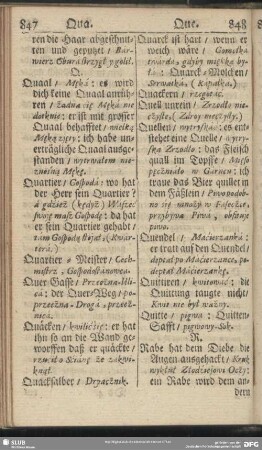 847 Qua.
Que. 848
ren die Haar abgeschnit-
ten und geputzt, Bar-
wierz Chmurdrzyk ygolil.
Q.
Quaal / Męka: es wird
dich keine Quaal anrüh-
ren / żadna cię Męka nie
dotknie: er ist mit grosser
Quaal behafftet,
Mękę ich habe un-
erträgliche Quaal ausge-
standen / wytrwałem nie-
znośną Mękę.
Quartier / Gospodá: wo hat
der Herr sein Quartier?
á gdzież (kędy) Wász
swoję mász Gospodę: da hat
er sein Quartier gehabt /
tám Gospodę
Quartier &c Meister / Coch-
mistrz, Gospodárowca.
Quer-Gasse / Przeczna-Uli-
cá: der Quer-Weg / po-
przeczna-Drogá, przecz-
nicá.
Quäcken / kwilić się: er hat
ihn so an die Wand ge-
worffen daß er quäckte/
o Ściánę że zákwi-
knął.
Quacksalber / Dryacznik.
Quarck ist hart / wenn er
weich wäre / Gomołka
twarda, gdyby miękka by-
łá: Quarck &c Molcken /
Serwatka. (Kapałka.)
Quackern / rzegotać.
Quell unrein / Zrzodło nie-
czyste, (Zdroy nieczysty.)
Quellen / wytryska: es ent-
stehet eine Quelle / wytry-
ska Zrzodło: das Fleisch
quall im Topffe / Mięso
pęczniało w Garncu: ich
traue das Bier quillet in
dem Fäßlein / Powopodob-
no się nádąży w Fáseczce,
przybywa Piwá, obfituje
piwo.
Quendel / Máćierzanká:
er tratt auf den Quendel /
deptał po Máćierzance, po-
deptał Máćierzankę.
Quittiren / kwitować: die
Quittung taugte nicht /
Kwit nie był ważny.
Quitte / pigwá: Quitten-
Safft / pigwowy-Sok.
R.
Rabe hat dem Diebe die
Augen ausgehackt / Kruk
wykłuł Złodziejowi Oczy:
ein Rabe wird dem an-
dern
SLUB